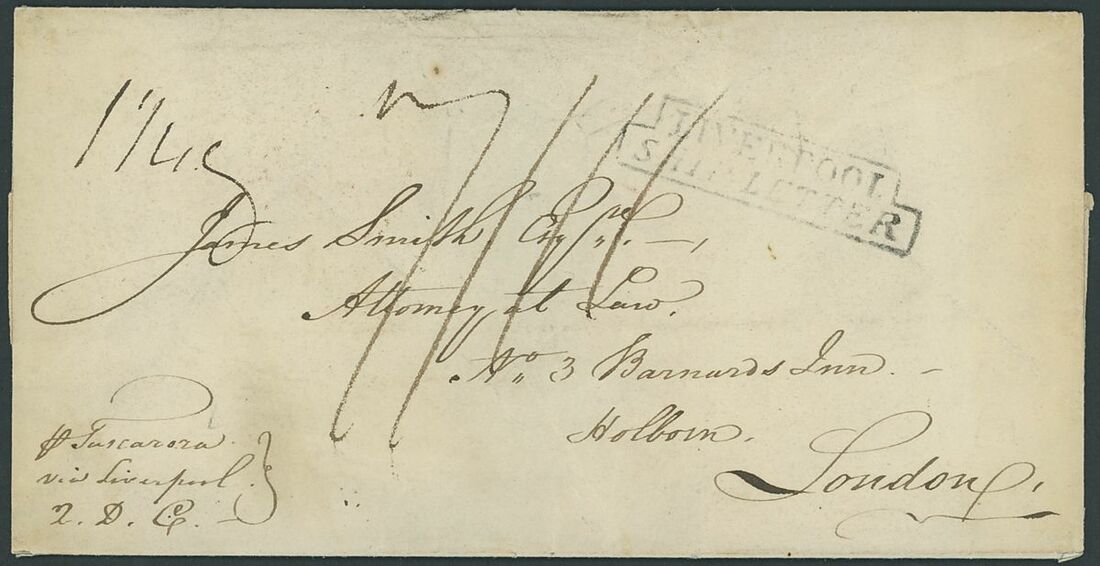 LIVERPOOL
SHIP LETTER
James Smith Esqre.
Attorney at Law,
No 3 Barnards Inn.
Holborn.
London,
p Tuscarora
via Liverpool
2. D. C.